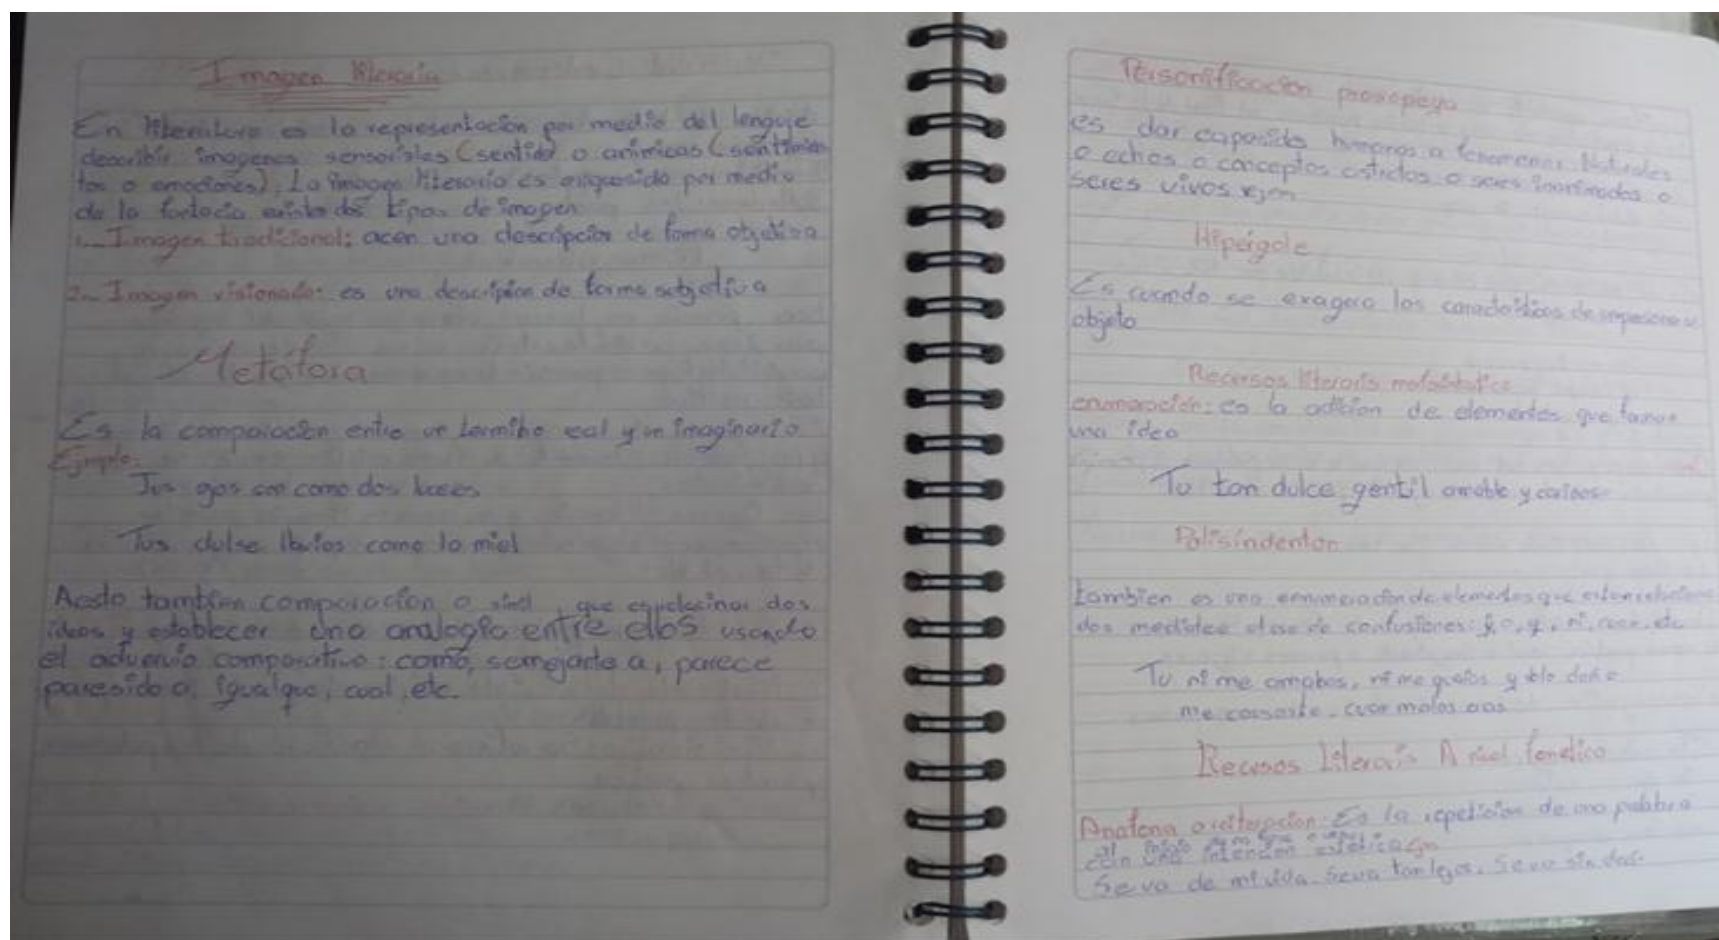 Imagen literaria
En literatura es la representación por medio del lenguje
describir imagenes sensoriales (sentido o animicas (sentimien
tos o emociones). La imagen literaria es enriquesida por medio
de la fantacia existe dos tipos de imagen
1.- Imagen tradicional: acen una descripción de forma objetiva
2.- Imagen visionada: es una descripcion de forma subjetiva
Metáfora
Es la comparación entre un termino eal y un imaginario
Ejmplo:
Tus ojos son como dos luceres
Tus dulse labios como la miel
Aesto tambien comparacion o simil, que dos
ideas y establecer una analogia entre ellos usando
el advervio comparativo: como, semejante a, parece
paresido a, igualque, cual, etc.
Personificación prosopeya
es dar capasida humanas a fenomenos Naturales
o echos o conceptos o seres inanimados o
seres vivos ejm
Hipérgole
Es cuando se exagera las de o
objeto
Recursos literaris
enumeración: es la adicion de elementos que
una idea
Tu tan dulce gentil amable y
Polisíndenton
tambien es una enumeración de elementos que
dos : y, o, q, ni, etc
Tu ni me amabas, ni me y solo daño
me
Recusos Literaris A fonetico
Anafona : Es la repeticion de una palabra
al inicio
con una intencion estética ejm
Se va de mi vida. Seva tan lejos. Se va sin